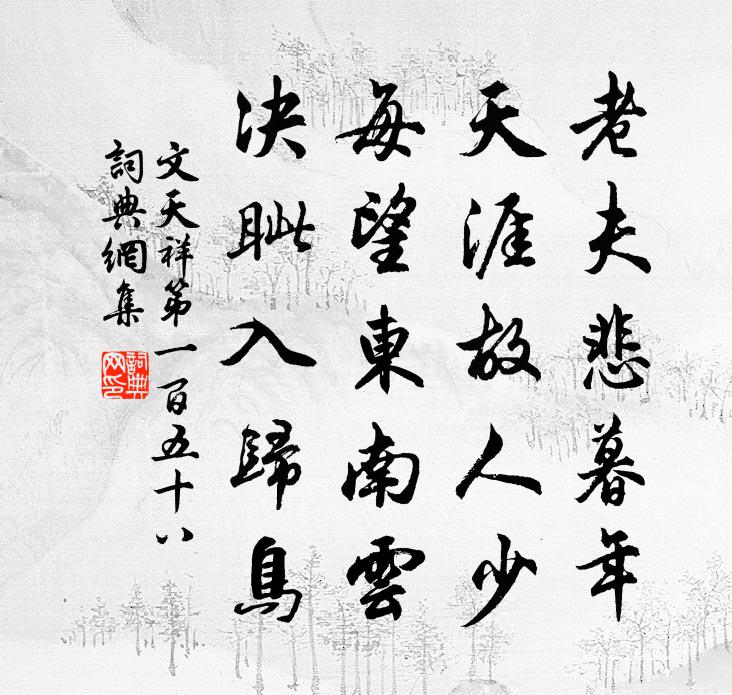 老夫悲暮年
天涯故人少
每望東南雲
決眦入歸鳥
文天祥第一百五十八
詞典網集
詞典网印